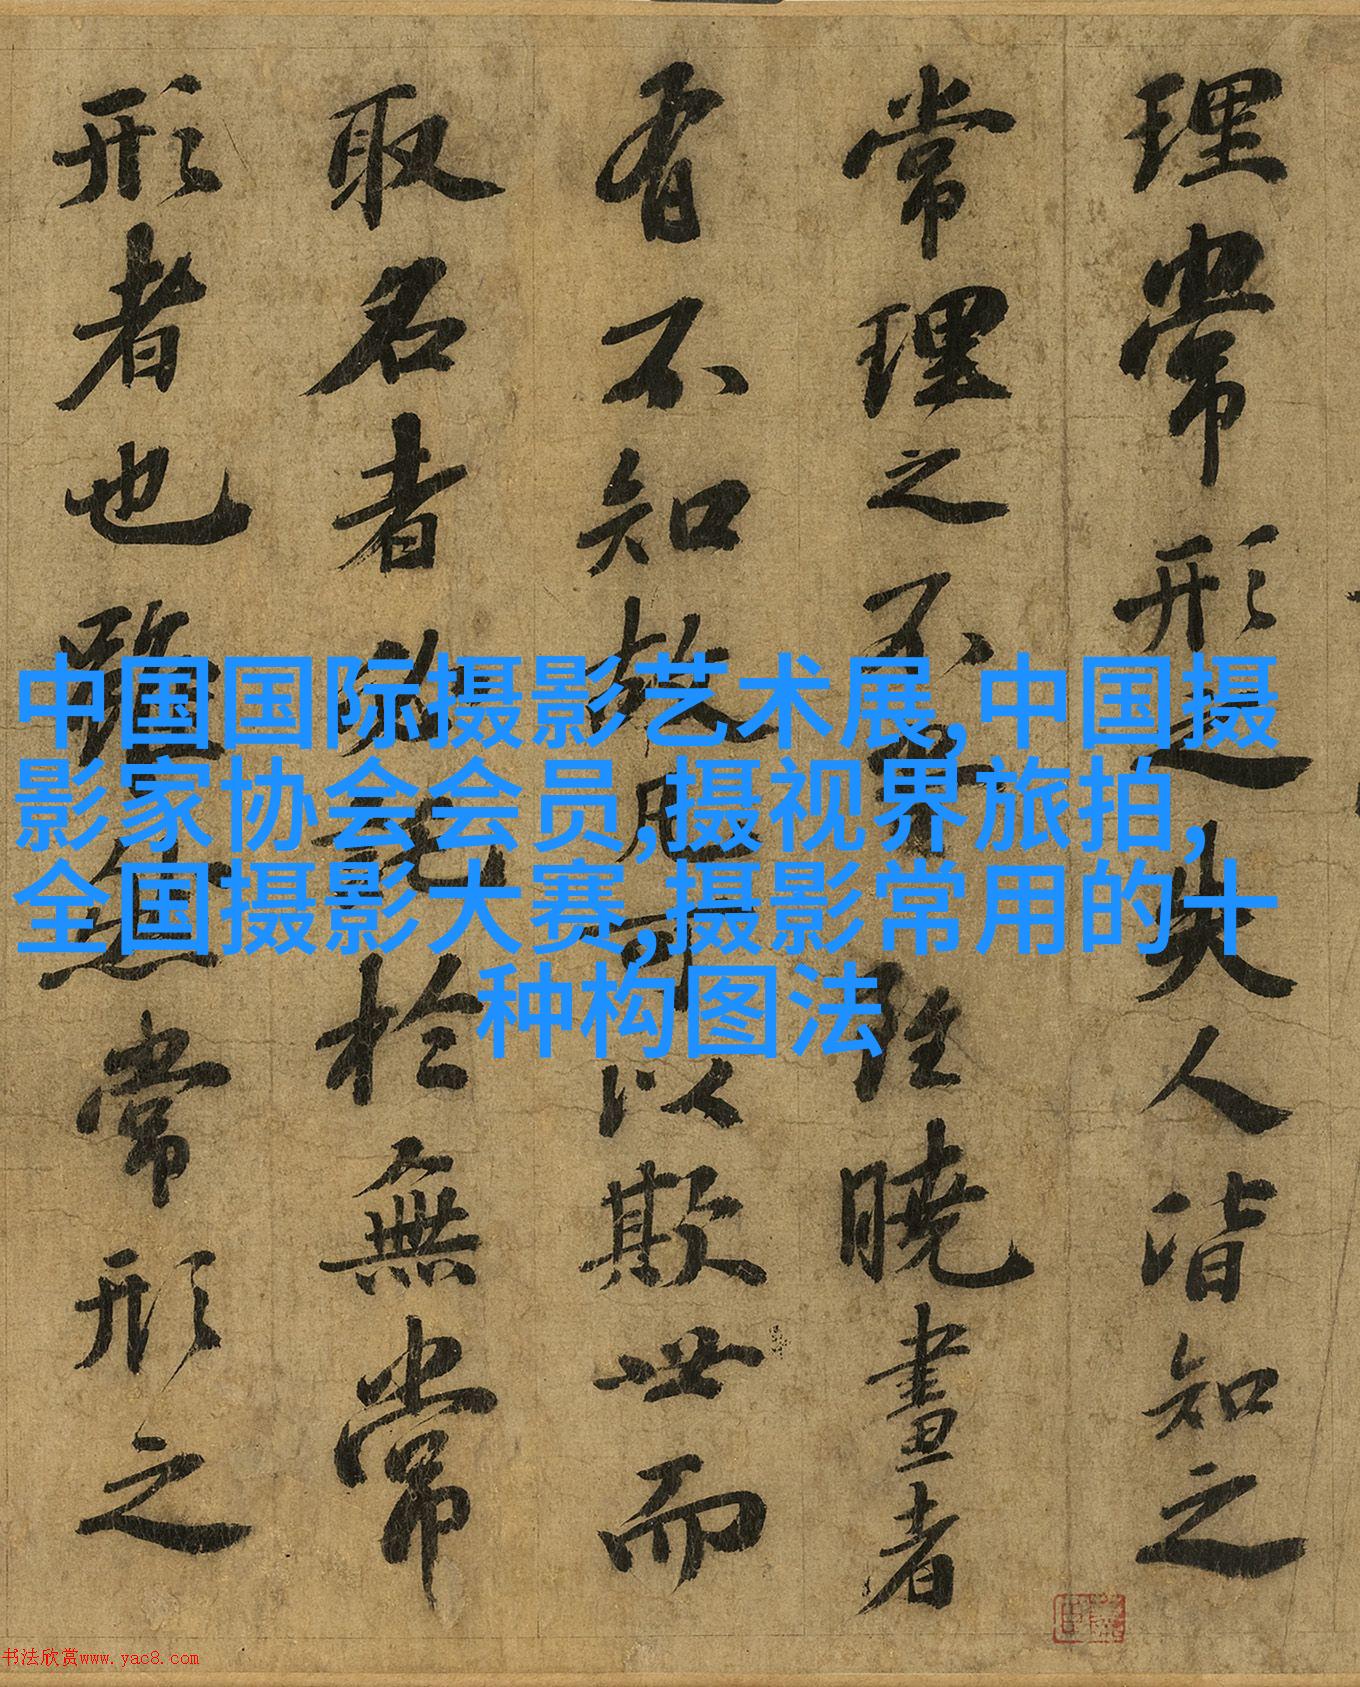 理常形之失人皆知之
常理之不雖曉畫者
有不知故凡可以欺世而
取名者必託於無常
形者也雖然常形之
中国国际摄影艺术展,中国摄
影家协会会员,摄视界旅拍,
全国摄影大赛,摄影常用的十
种构图法
书法欣赏www.yac8.com